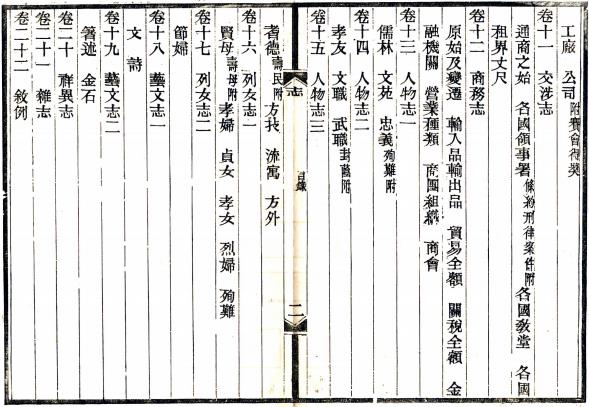 工廠　公司附賽會得奬
卷十一　交涉志
通商之始　各國領事署條約刑律案件附　各國敎堂　各國
租界丈尺
卷十二　商務志
原始及變遷　輸入品輸出品　貿易全額　關稅全額　金
融機關　營業種類　商團組織　商會
卷十三　人物志一
儒林　文苑　忠義殉難附
卷十四　人物志二
孝友　文職　武職封蔭附
卷十五　人物志三
志
目錄
二
耆德壽民附　方技　流寓　方外
卷十六　列女志一
賢母壽母附　孝婦　貞女　孝女　烈婦　殉難
卷十七　列女志二
節婦
卷十八　藝文志一
文　詩
卷十九　藝文志二
箸述　金石
卷二十　祥異志
卷二十一　雜志
卷二十二　敘例